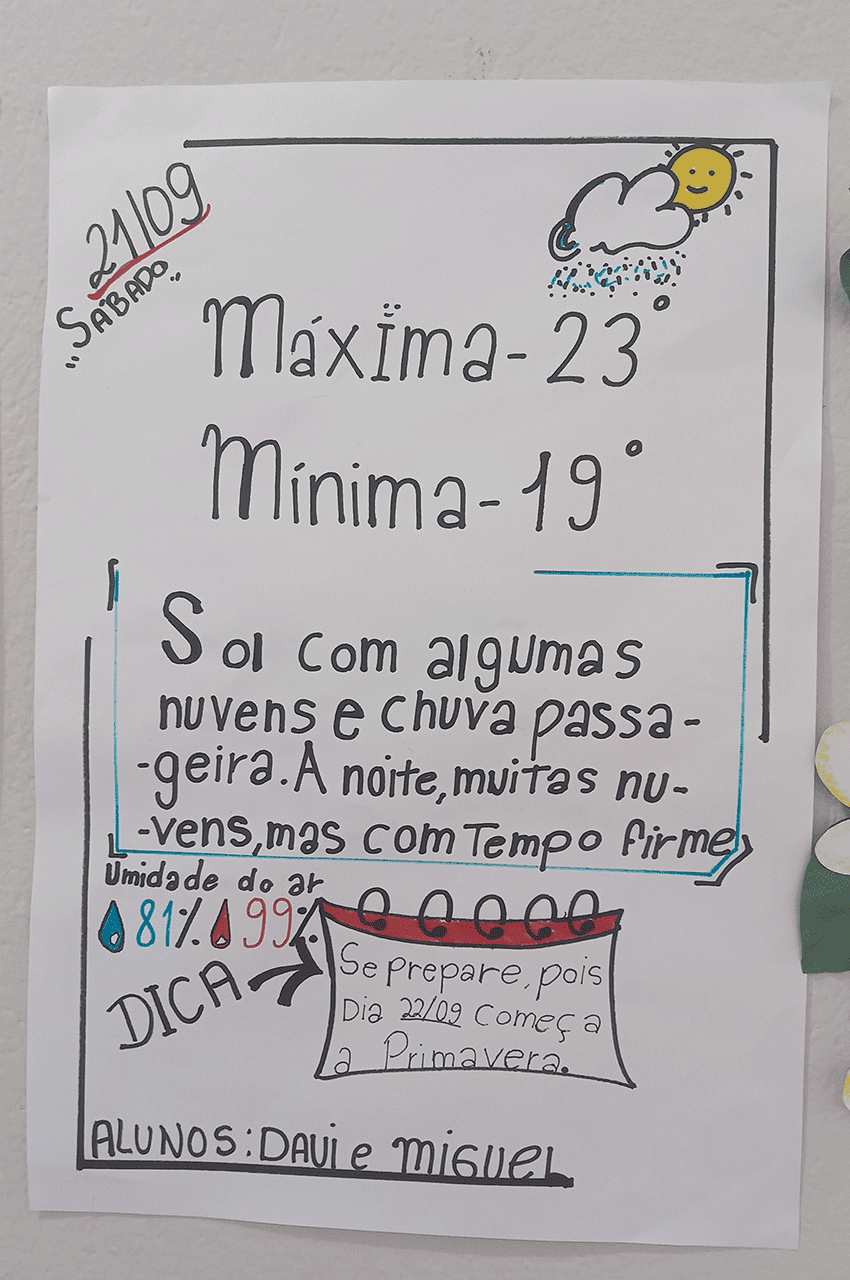 21/09
"SÁBADO"
Máxïma - 23°
Mínima - 19°
Sol com algumas
nuvens e chuva passa-
-geira. A noite, muitas nu-
-vens, mas com Tempo firme
Umidade do ar
81% 99%
DICA
Se prepare, pois
Dia 22/09 começa
a Primavera.
ALUNOS: DAVI e MIGUEL